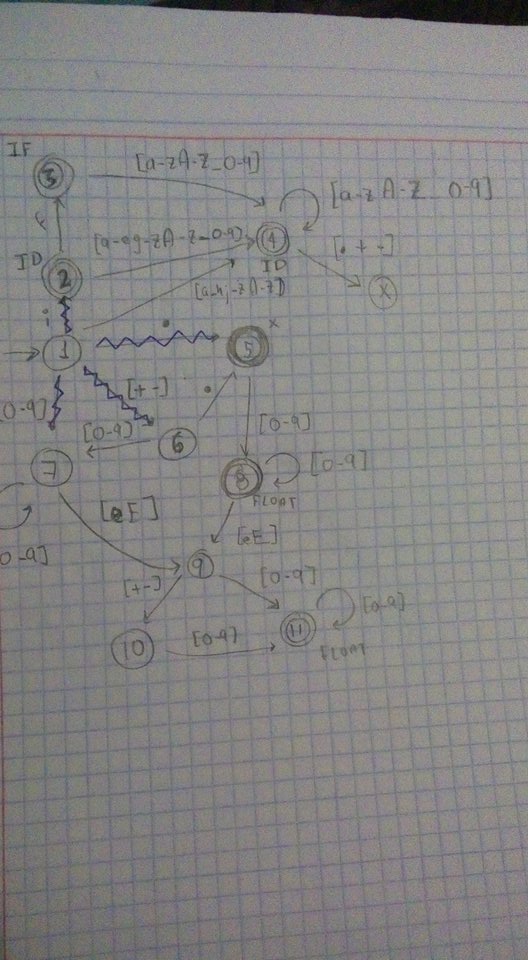 IF
3
[a-zA-Z_0-9]
[a-zA-Z_0-9]
F
[a-eg-zA-Z_0-9]
4
[. + -]
ID
2
ID
X
i
[a-h,j-zA-Z]
.
x
1
5
[+ -]
[0-9]
.
[0-9]
6
[0-9]
7
[0-9]
8
FLOAT
[eE]
[eE]
[0-9]
9
[0-9]
[+-]
[0-9]
11
10
[0-9]
FLOAT